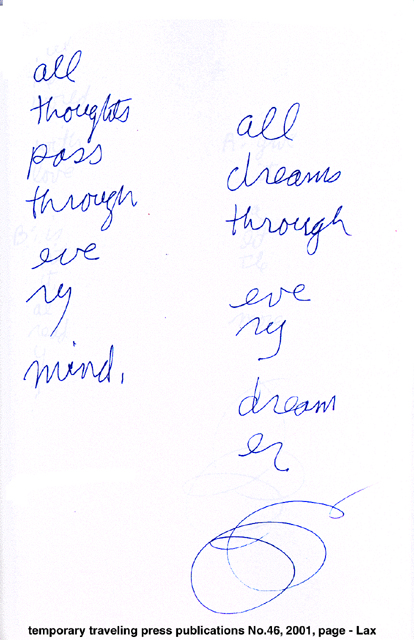 all
thoughts
pass
through
eve
ry
mind.
all
dreams
through
eve
ry
dream
er
temporary traveling press publications No.46, 2001, page - Lax